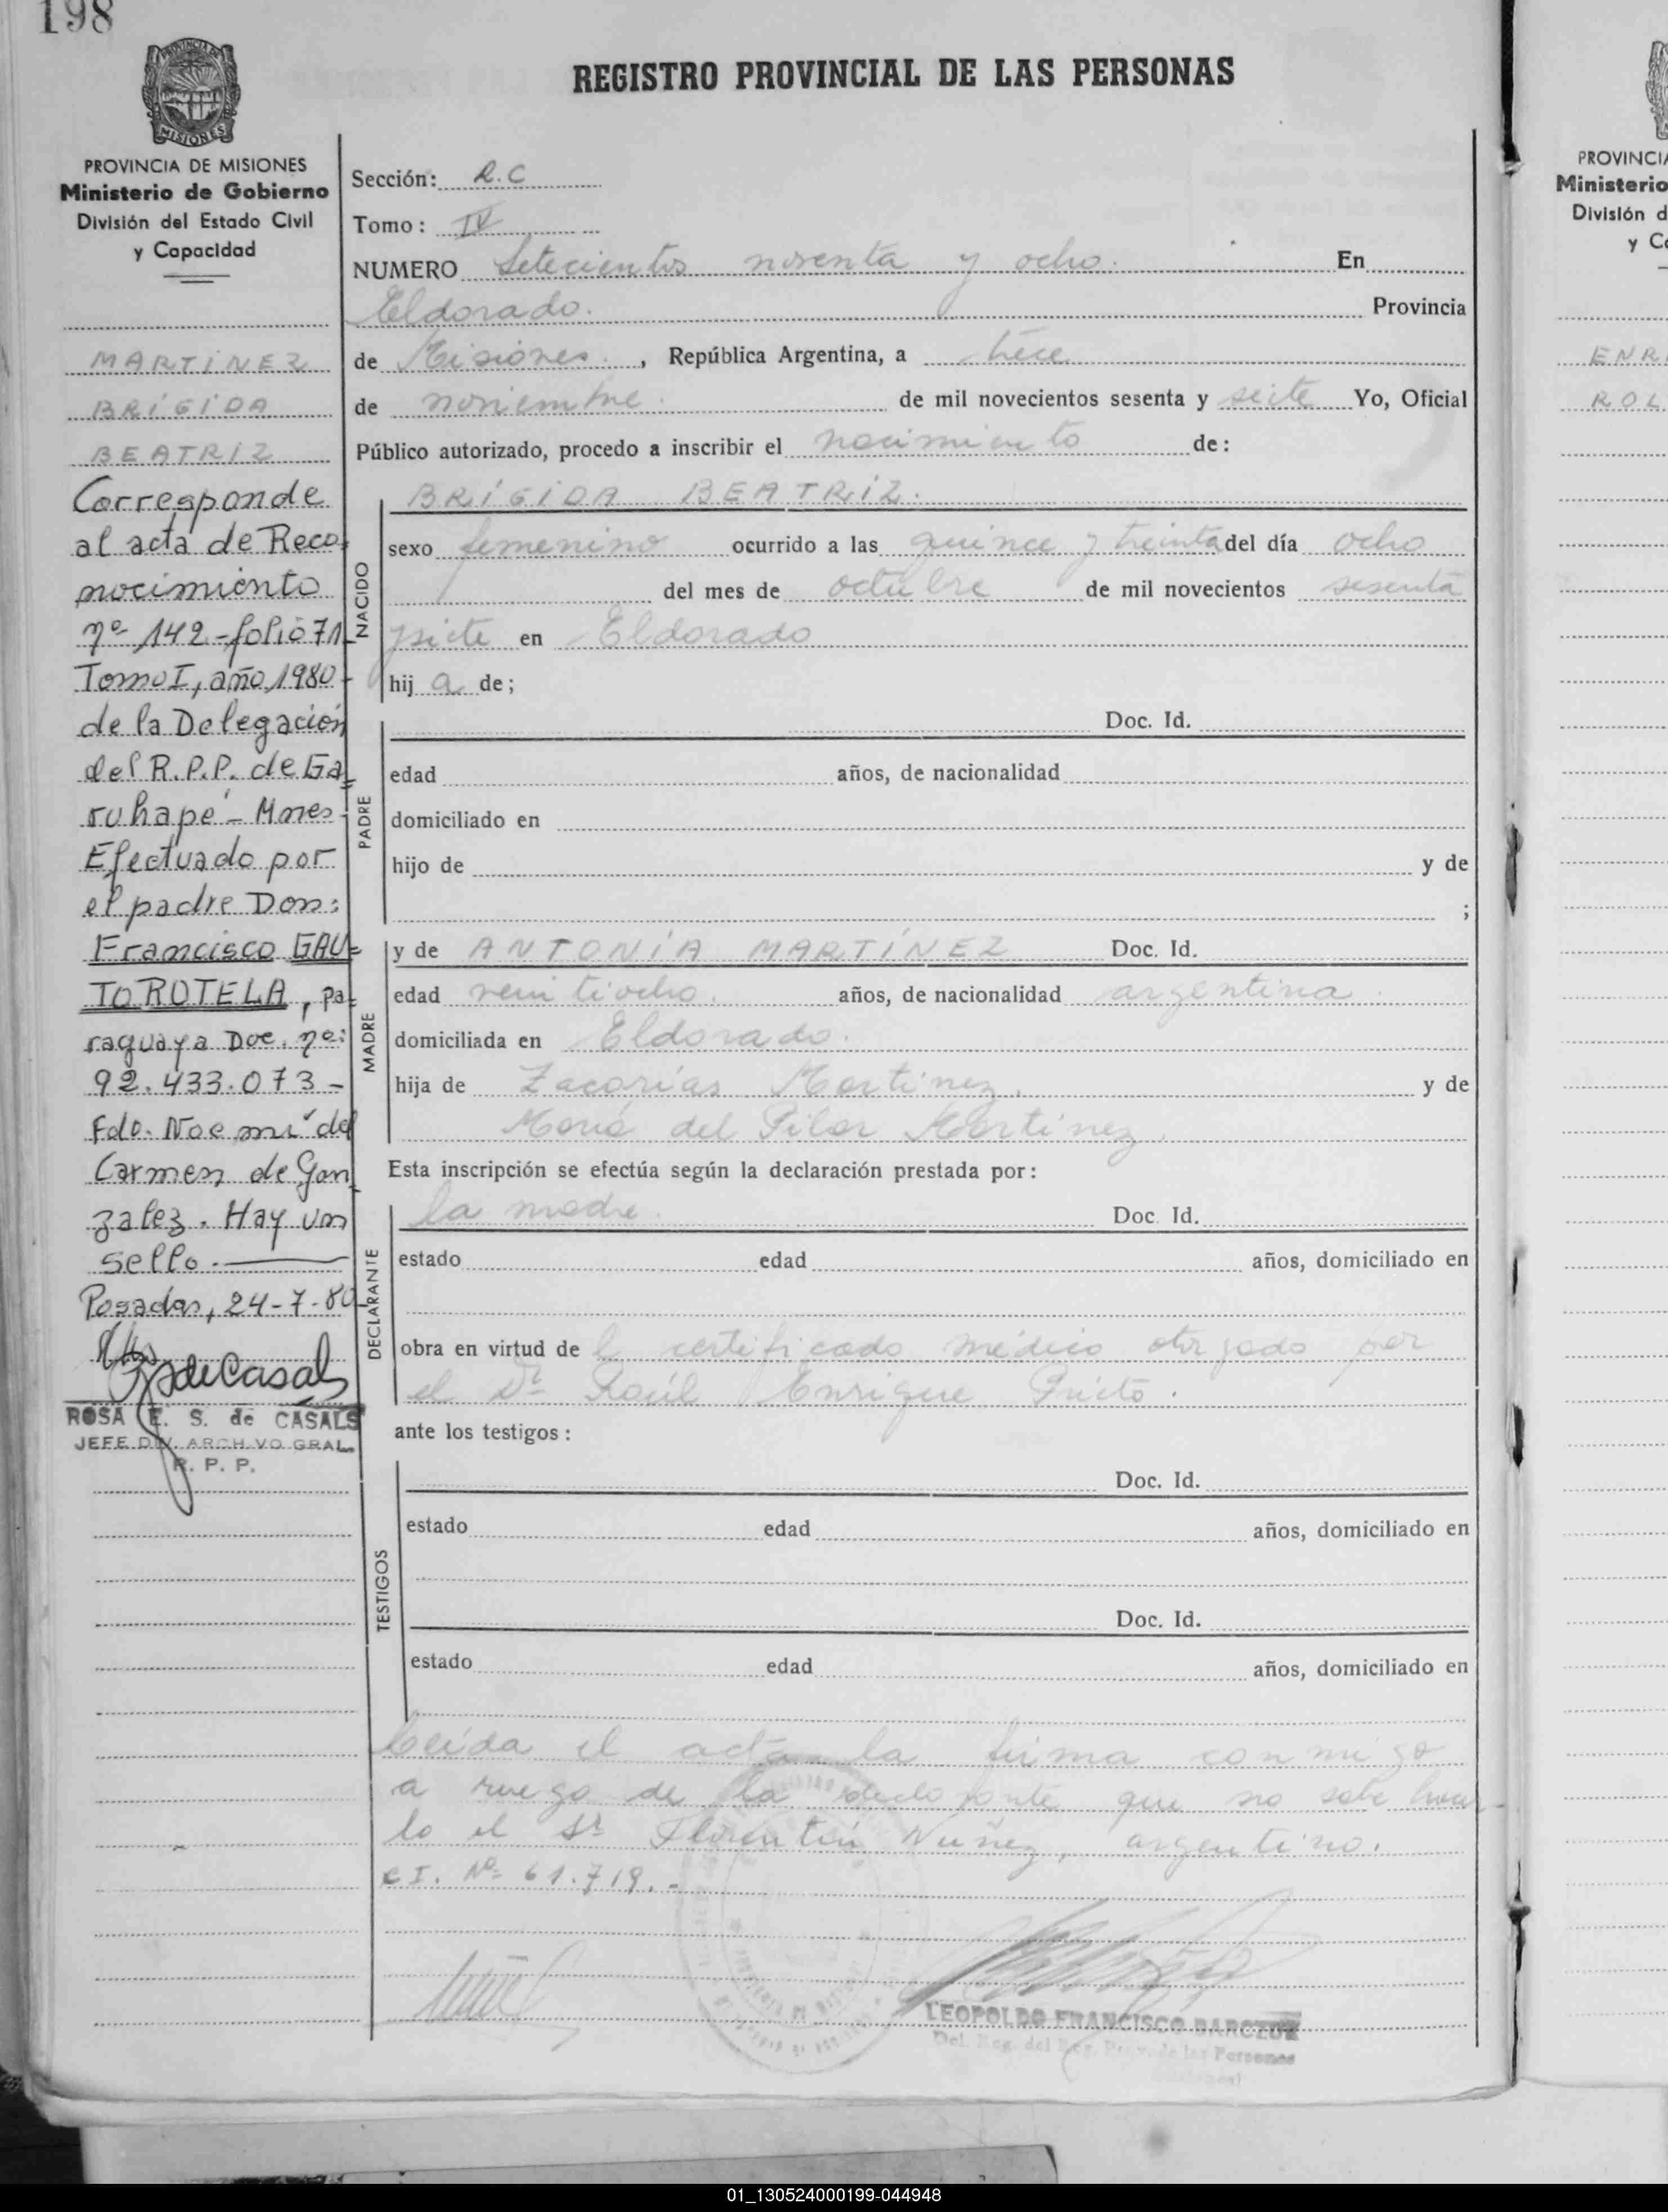 198
REGISTRO PROVINCIAL DE LAS PERSONAS
PROVINCIA DE MISIONES
MISIONES
PROVINCIA DE MISIONES
Ministerio de Gobierno
División del Estado Civil
y Capacidad
MARTÍNEZ
BRÍGIDA
BEATRÍZ
Corresponde
al acta de Reco
nocimiento
nº 142-folio 71
Tomo I, año 1980
de la Delegación
del R.P.P. de Ga
ruhapé - Mnes.
Efectuado por
el padre Don:
Francisco GAU=
TO ROTELA, pa
raguaya Doc. nº:
92.433.073-
Fdo. Noemí del
Carmen de Gon
zalez. Hay un
sello.
Posadas, 24-7-80
ROSA E. S. de CASALS
JEFE DIV. ARCHIVO GRAL.
R. P. P.
Sección: R.C
Tomo: IV
NUMERO Setecientos noventa y ocho. En
Eldorado. Provincia
de Misiones. , República Argentina, a trece
de noviembre. de mil novecientos sesenta y seite Yo, Oficial
Público autorizado, procedo a inscribir el nacimiento de:
BRÍGIDA BEATRÍZ.
NACIDO
sexo femenino ocurrido a las quince y treinta del día ocho
del mes de octubre de mil novecientos sesenta
ysiete en Eldorado
hij a de;
PADRE
Doc. Id.
edad años, de nacionalidad
domiciliado en
hijo de y de
;
MADRE
y de ANTONÍA MARTÍNEZ Doc. Id.
edad veintiocho. años, de nacionalidad argentina.
domiciliada en Eldorado.
hija de Zacarías Martinez, y de
María del Pilar Martinez,
Esta inscripción se efectúa según la declaración prestada por:
DECLARANTE
la madre. Doc. Id.
estado edad años, domiciliado en
obra en virtud de l certificado médico otorgado por
el Dr. Raúl Enrique Prieto.
ante los testigos:
TESTIGOS
Doc. Id.
estado edad años, domiciliado en
Doc. Id.
estado edad años, domiciliado en
Leída el acta la firma conmigo
a ruego de la declarante que no sabe hacer
lo el Sr Florentín Nuñez, argentino.
C.I. Nº 61.719.-
LEOPOLDO FRANCISCO
Del. Reg. del Reg. Prov. de las Personas
PROVINCIA
Ministerio
División d
y Ca
ENR
ROL
01_130524000199-044948